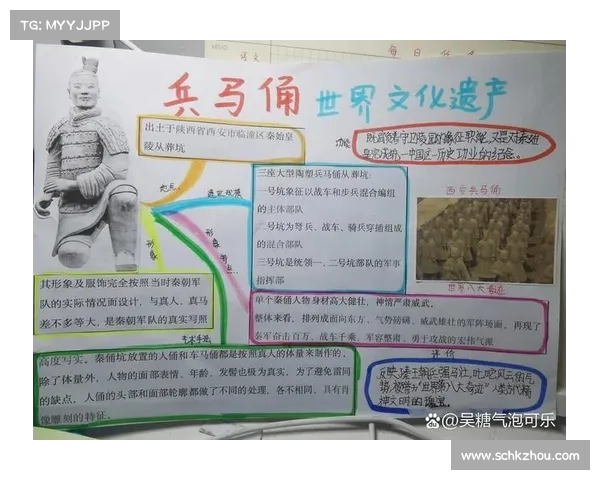 TG: MYYJJPP
语文
每日
兵马俑 世界文化遗产
出土于陕西省西安市临潼区秦始皇
陵从葬坑
地点
功能
既武装守卫陵园的象征职能,又是对秦始
皇完成第一中国这一历史功业的纪念。
遗址规模
三座大型陶塑兵马俑从葬坑:
一号坑象征以战车和步兵混合编组
的主体部队
二号坑为弩兵、战车、骑兵穿插组成
的混合部队
三号坑是统领一、二号坑部队的军事
指挥部
西安兵马俑
世界八大奇迹
形象
形象特点
其形象及服饰完全按照当时秦朝军
队的实际情况而设计,与真人、真马
差不多等大,是秦朝军队的真实写照
单个秦俑人物身材高大健壮,神情严肃威武,
整体来看,排列成面向东方、气势磅礴、威武雄壮的军阵场面,再现了
秦军奋击百万、战车千乘、军容整肃、勇于攻战的宏伟气派
艺术手法
高度写实。秦俑坑放置的人俑和车马俑都是按照真人的体量来制作的,
除了体量外,人物的面部表情、年龄、发髻也极为真实,为了避免雷同
的缺点,人俑的头部和面部轮廓都做了不同的处理,各不相同,具有肖
像雕刻的特征。
评价
反映秦王朝兵强马壮、叱咤风云的气
势,被誉为"世界第八大奇迹"人类古代精
神文明的瑰宝。
知乎 @吴糖气泡可乐
www.schkzhou.com